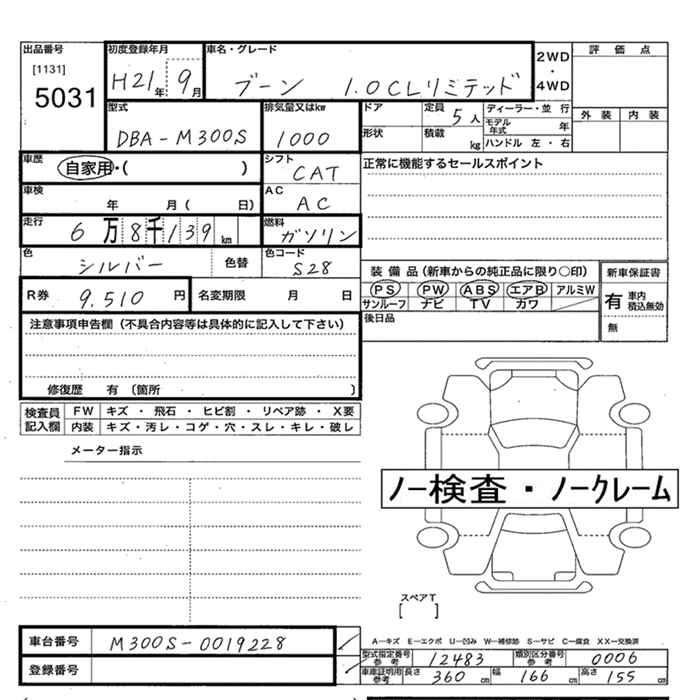 出品番号 初度登録年月 車名・グレード 2WD・4WD 評価点
[1131]
5031 H21年 9月 ブーン 1.0CLリミテッド
型式 排気量又はkw ドア 定員 5人 ディーラー・並行 外装 内装
DBA-M300S 1000 形状 積載 kg モデル年式 年
ハンドル 左・右
車歴 自家用・( ) シフト CAT 正常に機能するセールスポイント
車検 年 月( 日) AC AC
走行 6万8千139km 燃料 ガソリン
色 シルバー 色替 色コード S28
装備品(新車からの純正品に限り○印) 新車保証書
R券 9.510円 名変期限 月 日 PS PW ABS エアB アルミW 有 車内積込無効
サンルーフ ナビ TV カワ 無
注意事項申告欄(不具合内容等は具体的に記入して下さい) 後日品
修復歴 有 (箇所 )
検査員記入欄 FW キズ・飛石・ヒビ割・リペア跡・X要
内装 キズ・汚レ・コゲ・穴・スレ・キレ・破レ
メーター指示
ノー検査・ノークレーム
スペアT
[ ]
車台番号 M300S-0019228
A―キズ E―エクボ U―凹み W―補修跡 S―サビ C―腐食 XX―交換済
型式指定番号参考 12483 類別区分番号参考 0006
登録番号 車庫証明用参考 長さ 360cm 幅 166cm 高さ 155cm